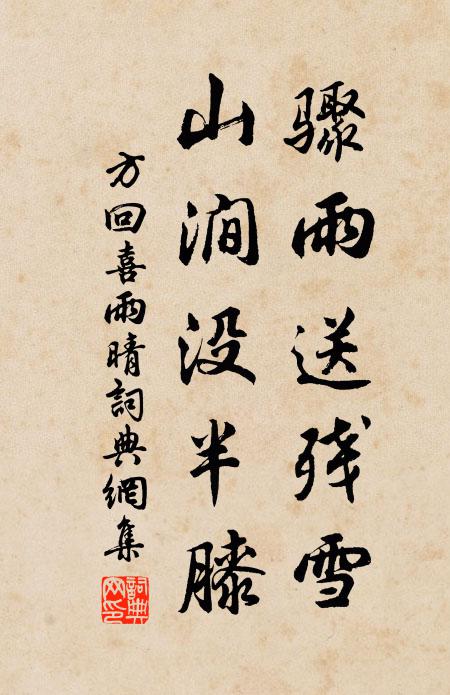 骤雨送残雪
山涧没半膝
方回喜雨晴詞典網集
詞典
网印